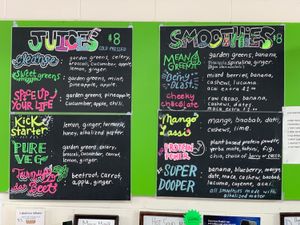 JUICES $8
COLD PRESSED
Cleanse
garden greens, celery,
broccoli, cucumber, apple
lemon, ginger.
Sweet greens
garden greens, mint,
pineapple, apple.
SPICE UP YOUR LIFE
garden greens, pineapple,
Cucumber, apple, chilli.
Kick starter
lemon, ginger, turmeric,
honey, alkalized water
PURE VEG
garden greens, celery,
broccoli, cucumber, carrot,
lemon, ginger.
Turnip the Beet
beetroot, carrot,
apple, ginger.
SMOOTHIES $8
MEAN GREENS
banana, garden greens,
spirulina, ginger.
Berry Blast
mixed berries, banana,
cashew, lucuma,
cheeky chocolate
raw cacao, banana,
dates, maca, cashew.
Mango Lassi
mango, baobab, date,
cashew, lime.
PROTEIN POWER
Plant based protein powder,
chia, choice of berry or cacao.
SUPER DOOPER
banana, blueberry, mango,
date, maca, cashew, baobab,
lucuma, cayenne, acai.
all smoothies made with
alkalized water